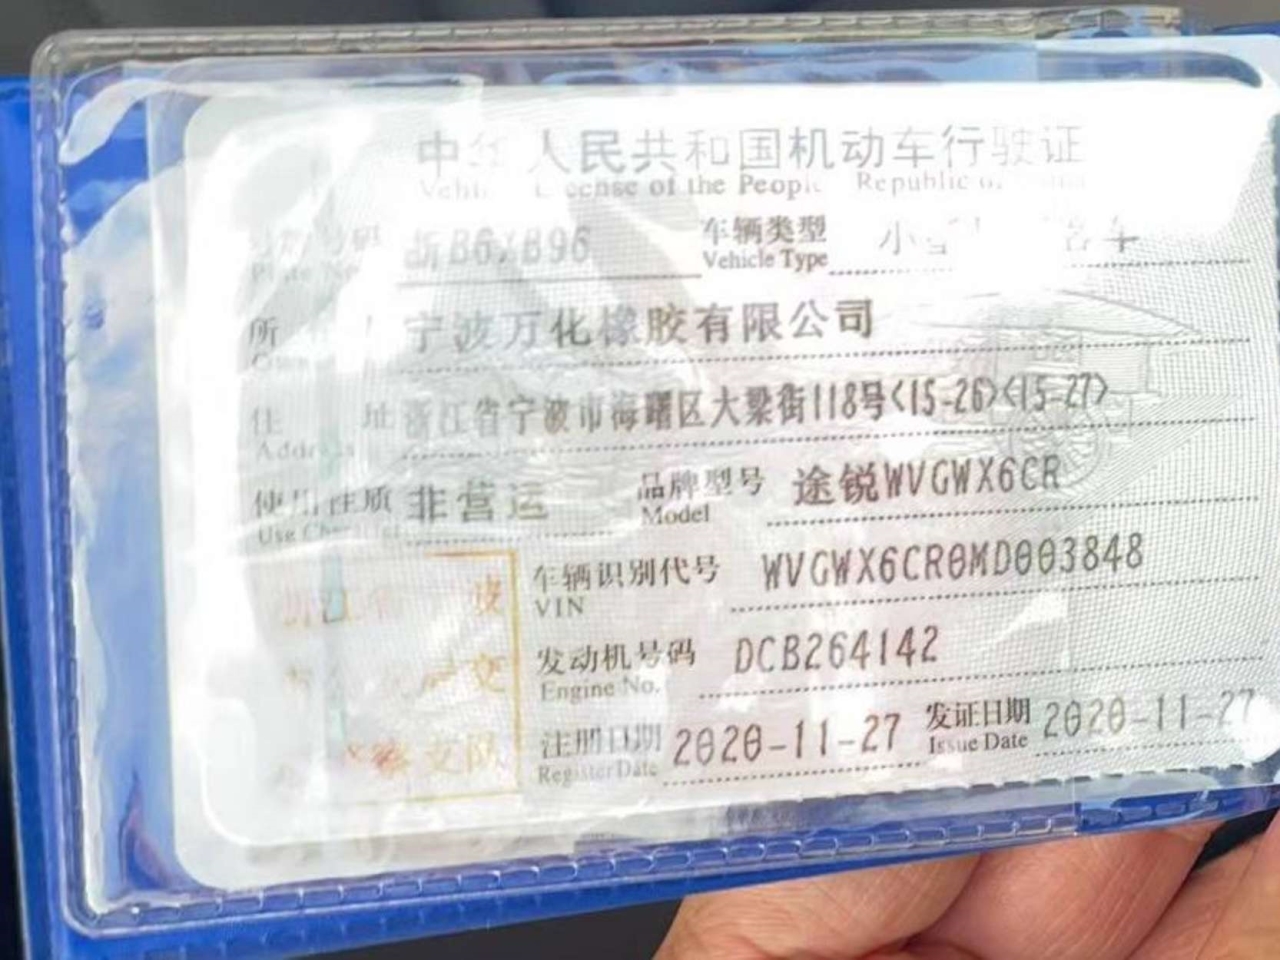 中华人民共和国机动车行驶证
Vehicle License of the People's Republic of China
号码 浙B6XB96 车辆类型 小型 客车
Plate No. Vehicle Type
所 人 宁波万化橡胶有限公司
住 址 浙江省宁波市海曙区大梁街118号<15-26><15-27>
Address
使用性质 非营运 品牌型号 途锐WVGWX6CR
Use Character Model
浙江省 波 车辆识别代号 WVGWX6CR0MD003848
VIN
交 发动机号码 DCB264142
Engine No.
察支队 注册日期 2020-11-27 发证日期 2020-11-27
Register Date Issue Date